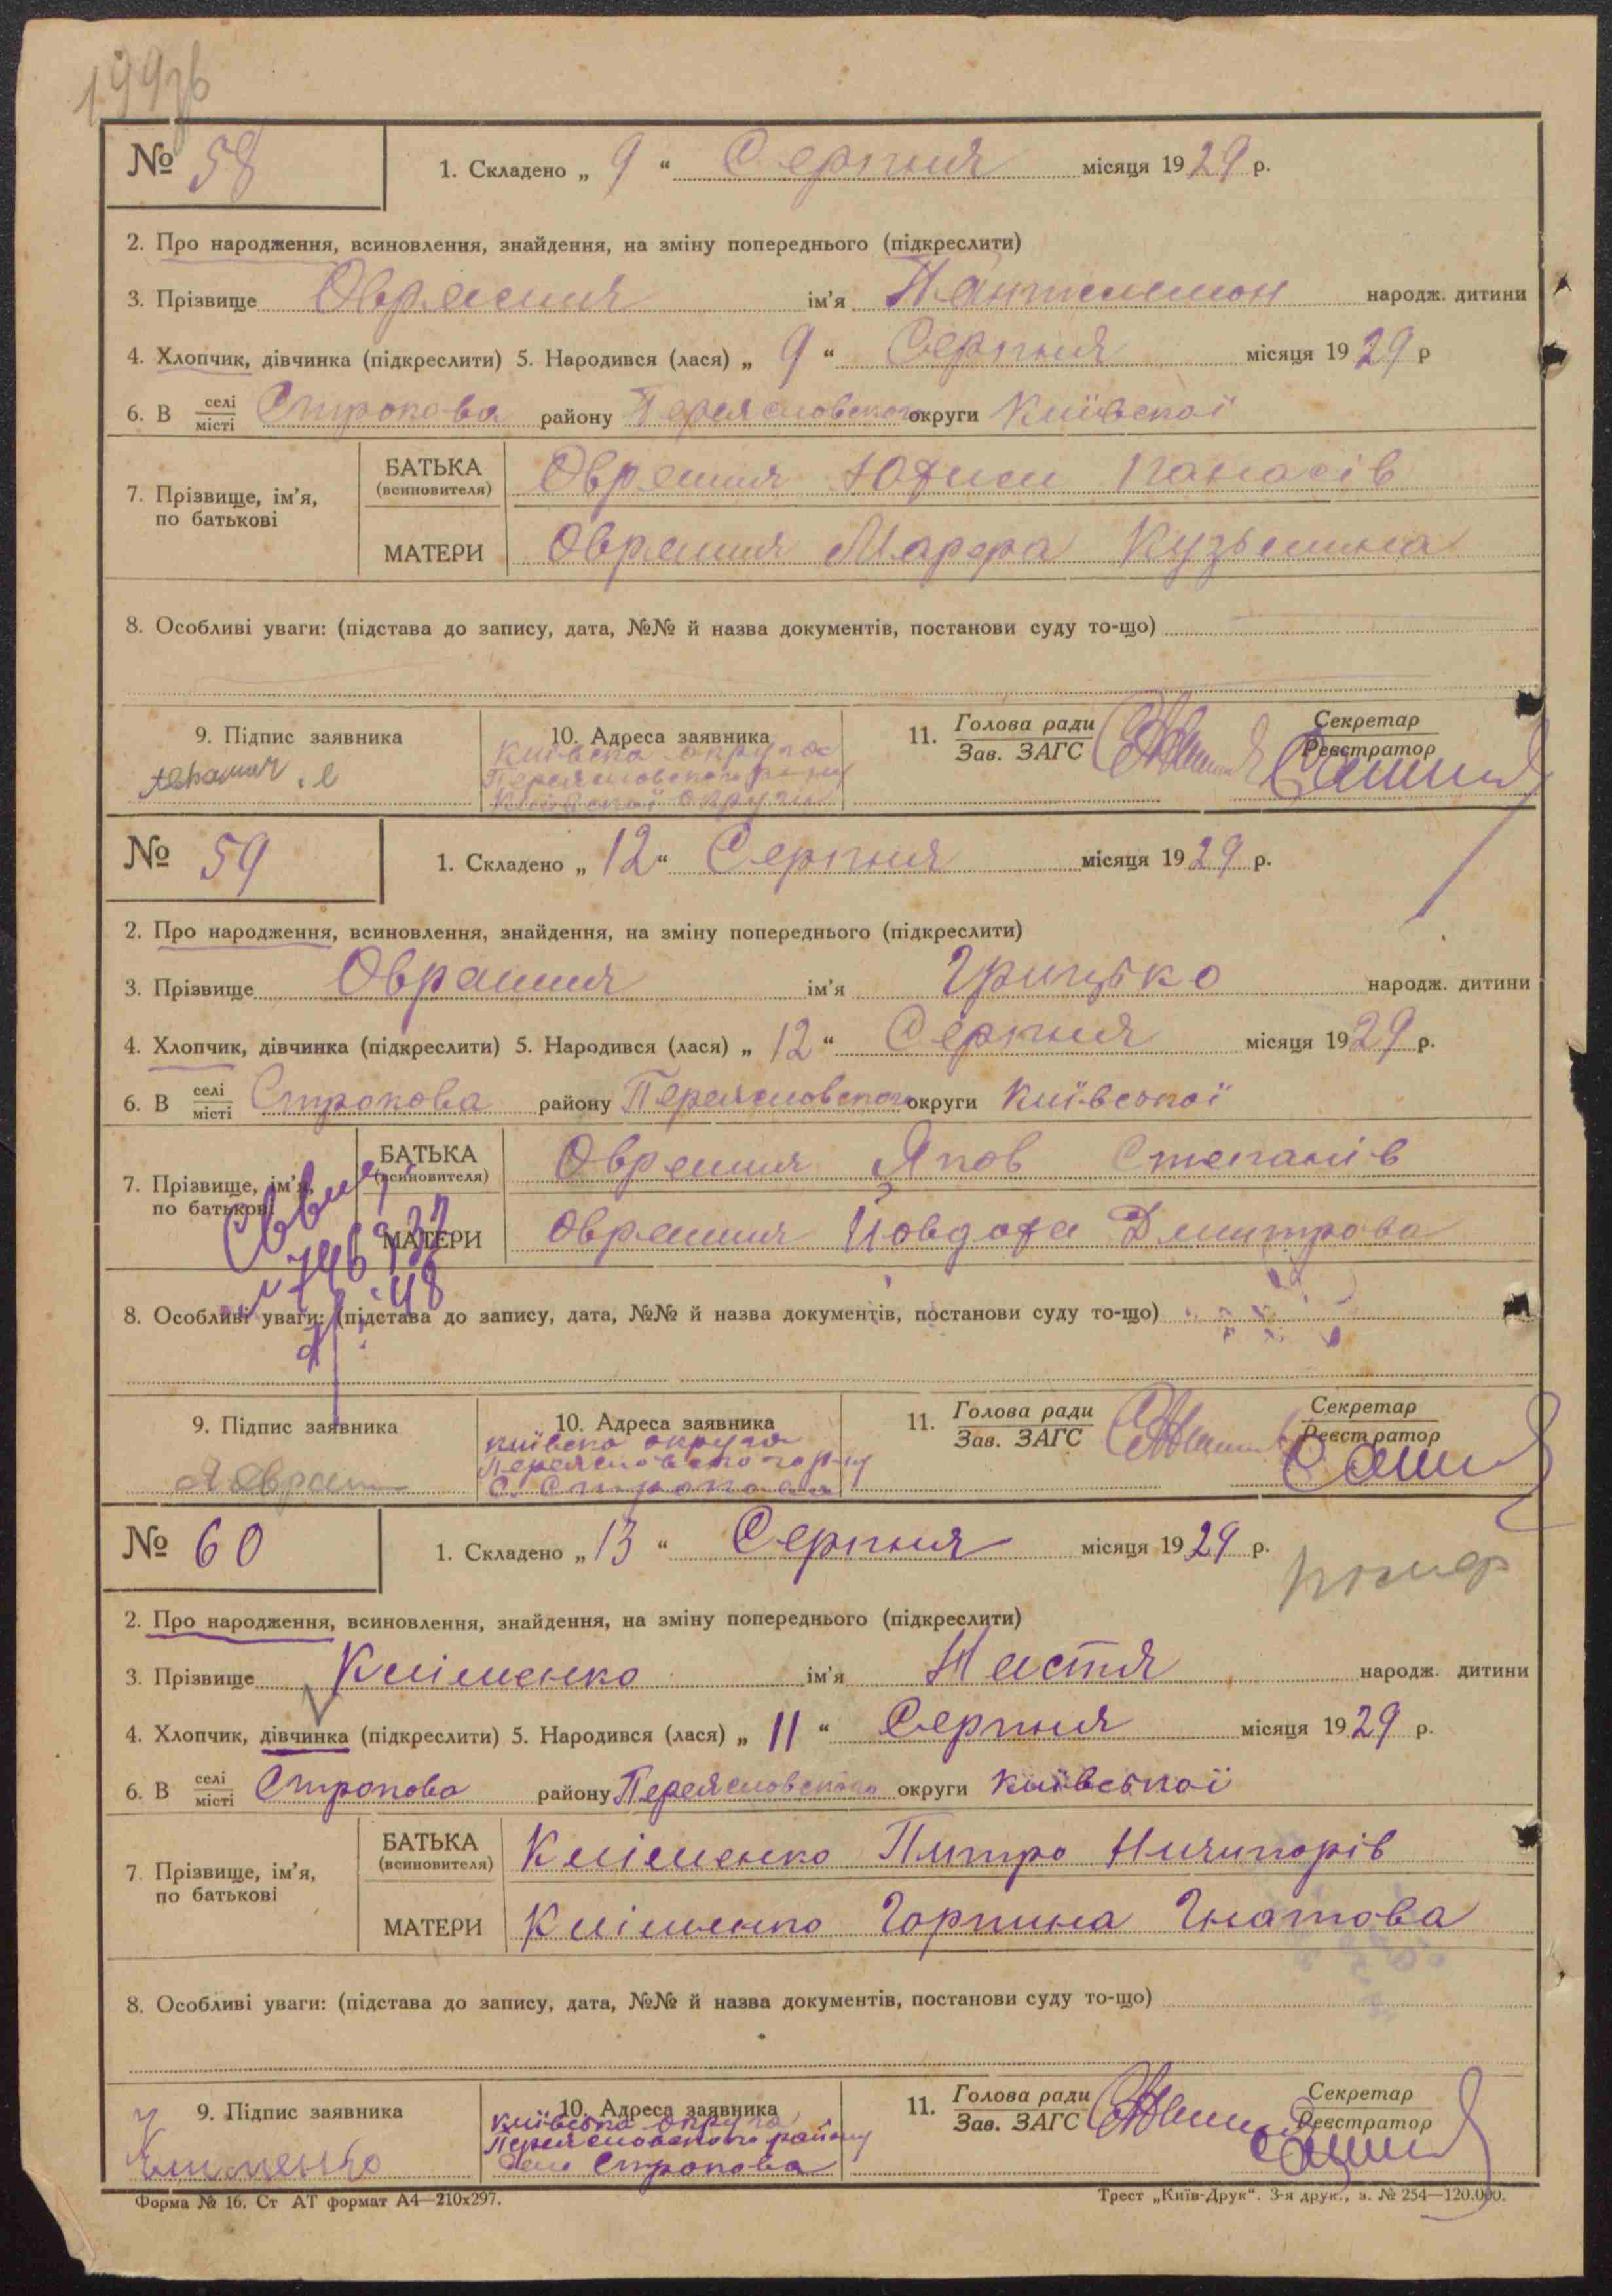 № 58
1. Складено „ 9 “ Серпня місяця 1929 р.
2. Про народження, всиновлення, знайдення, на зміну попереднього (підкреслити)
3. Прізвище ім'я Пантелемон народж. дитини
4. Хлопчик, дівчинка (підкреслити) 5. Народився (лася) „ 9 “ Серпня місяця 1929 р
6. В селі місті Строкова району Переяславського округи Київської
7. Прізвище, ім'я, по батькові
БАТЬКА (всиновителя) Оврашня Юхим Панасів
МАТЕРИ Оврашня Марфа Кузьмина
8. Особливі уваги: (підстава до запису, дата, №№ й назва документів, постанови суду то-що)
9. Підпис заявника
10. Адреса заявника
Київська округа
Переяславського р-ну
Київської округи
11. Голова ради
Зав. ЗАГС
Секретар
Реєстратор
№ 59
1. Складено „ 12 “ Серпня місяця 1929 р.
2. Про народження, всиновлення, знайдення, на зміну попереднього (підкреслити)
3. Прізвище Оврашня ім'я Грицько народж. дитини
4. Хлопчик, дівчинка (підкреслити) 5. Народився (лася) „ 12 “ Серпня місяця 1929 р.
6. В селі місті Строкова району Переяславського округи Київської
7. Прізвище, ім'я, по батькові
БАТЬКА (всиновителя) Оврашня Яков Степанів
МАТЕРИ Оврашня Йовдоха Дмитрова
8. Особливі уваги: (підстава до запису, дата, №№ й назва документів, постанови суду то-що)
9. Підпис заявника
10. Адреса заявника
Київська округа
Переяславського р-ну
С. Строкова
11. Голова ради
Зав. ЗАГС
Секретар
Реєстратор
№ 60
1. Складено „ 13 “ Серпня місяця 1929 р.
помер
2. Про народження, всиновлення, знайдення, на зміну попереднього (підкреслити)
3. Прізвище Кліменко ім'я Настя народж. дитини
4. Хлопчик, дівчинка (підкреслити) 5. Народився (лася) „ 11 “ Серпня місяця 1929 р.
6. В селі місті Строкова району Переяславського округи Київської
7. Прізвище, ім'я, по батькові
БАТЬКА (всиновителя) Кліменко Питро Ничипорів
МАТЕРИ Кліменко Горпина Гнатова
8. Особливі уваги: (підстава до запису, дата, №№ й назва документів, постанови суду то-що)
9. Підпис заявника
10. Адреса заявника
Київська округа
Переяславського району
село Строкова
11. Голова ради
Зав. ЗАГС
Секретар
Реєстратор
Форма № 16. Ст АТ формат А4—210х297.
Трест „Київ-Друк“. 3-я друк., з. № 254—120.000.